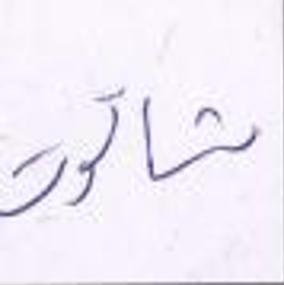 شاكوت